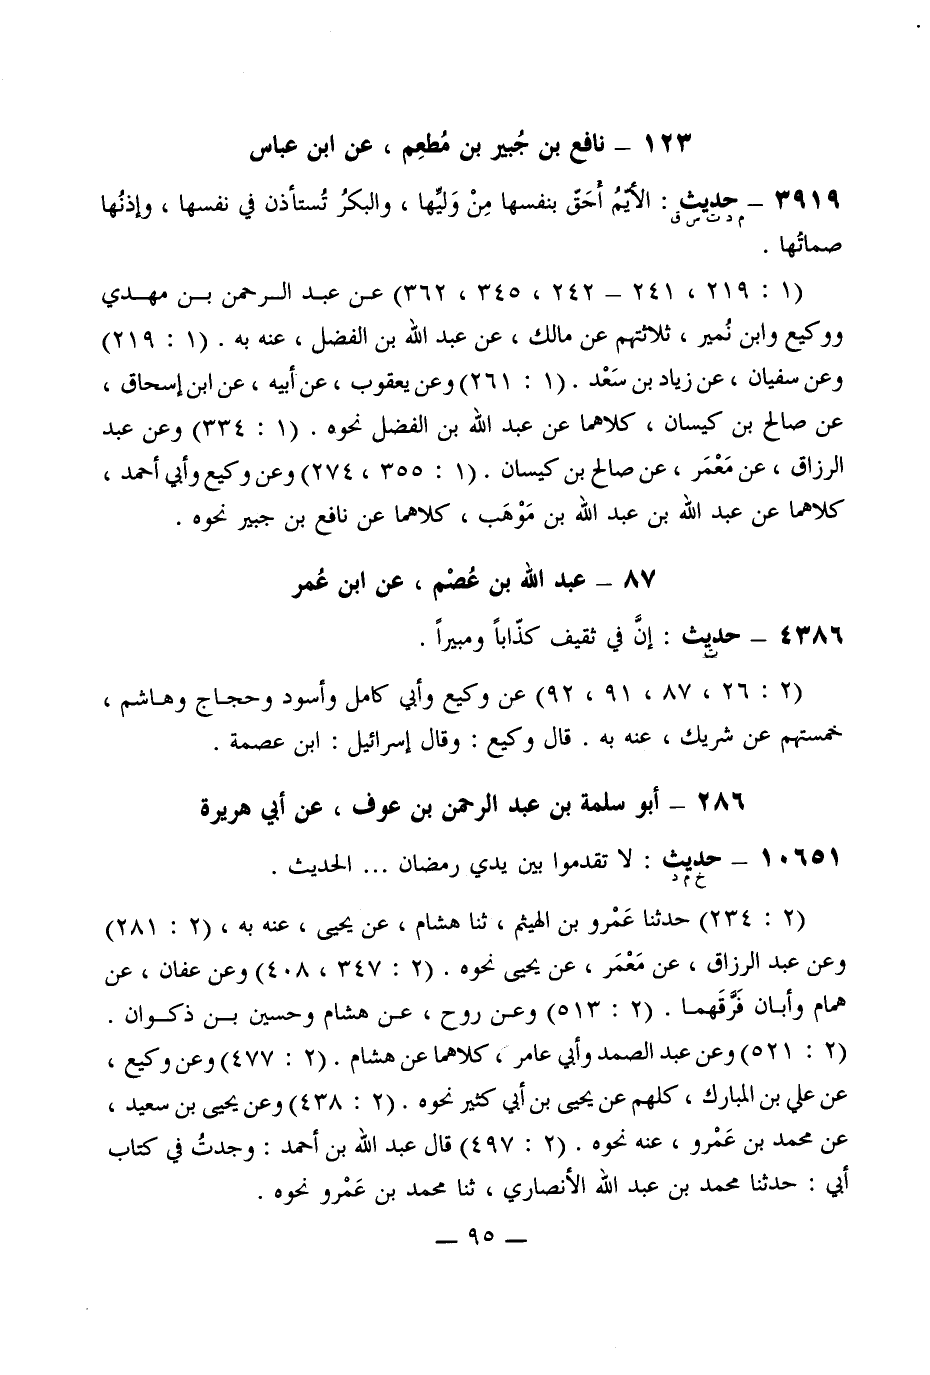 ١٢٣ – نافع بن جُبير بن مُطعِم ، عن ابن عباس
٣٩١٩ – حديث : الأيِّمُ أَحَقّ بنفسها مِنْ وَليِّها ، والبكرُ تُستأذن في نفسها ، وإذنُها
م د ت س ق
صماتُها .
(١ : ٢١٩ ، ٢٤١ – ٢٤٢ ، ٣٤٥ ، ٣٦٢) عن عبد الرحمن بن مهدي
ووكيع وابن نُمير ، ثلاثتهم عن مالك ، عن عبد الله بن الفضل ، عنه به . (١ : ٢١٩)
وعن سفيان ، عن زياد بن سَعْد . (١ : ٢٦١) وعن يعقوب ، عن أبيه ، عن ابن إسحاق ،
عن صالح بن كيسان ، كلاهما عن عبد الله بن الفضل نحوه . (١ : ٣٣٤) وعن عبد
الرزاق ، عن مَعْمَر ، عن صالح بن كيسان . (١ : ٣٥٥ ، ٢٧٤) وعن وكيع وأبي أحمد ،
كلاهما عن عبد الله بن عبد الله بن مَوْهَب ، كلاهما عن نافع بن جبير نحوه .
٨٧ – عبد الله بن عُصْم ، عن ابن عُمر
٤٣٨٦ – حديث : إنَّ في ثقيف كذّاباً ومبيراً .
ت
(٢ : ٢٦ ، ٨٧ ، ٩١ ، ٩٢) عن وكيع وأبي كامل وأسود وحجاج وهاشم ،
خمستهم عن شريك ، عنه به . قال وكيع : وقال إسرائيل : ابن عصمة .
٢٨٦ – أبو سلمة بن عبد الرحمن بن عوف ، عن أبي هريرة
١٠٦٥١ – حديث : لا تقدموا بين يدي رمضان ... الحديث .
خ م د
(٢ : ٢٣٤) حدثنا عَمْرو بن الهيثم ، ثنا هشام ، عن يحيى ، عنه به ، (٢ : ٢٨١)
وعن عبد الرزاق ، عن مَعْمَر ، عن يحيى نحوه . (٢ : ٣٤٧ ، ٤٠٨) وعن عفان ، عن
همام وأبان فَرَّقَهما . (٢ : ٥١٣) وعن روح ، عن هشام وحسين بن ذكوان .
(٢ : ٥٢١) وعن عبد الصمد وأبي عامر ، كلاهما عن هشام . (٢ : ٤٧٧) وعن وكيع ،
عن علي بن المبارك ، كلهم عن يحيى بن أبي كثير نحوه . (٢ : ٤٣٨) وعن يحيى بن سعيد ،
عن محمد بن عَمْرو ، عنه نحوه . (٢ : ٤٩٧) قال عبد الله بن أحمد : وجدتُ في كتاب
أبي : حدثنا محمد بن عبد الله الأنصاري ، ثنا محمد بن عَمْرو نحوه .
– ٩٥ –